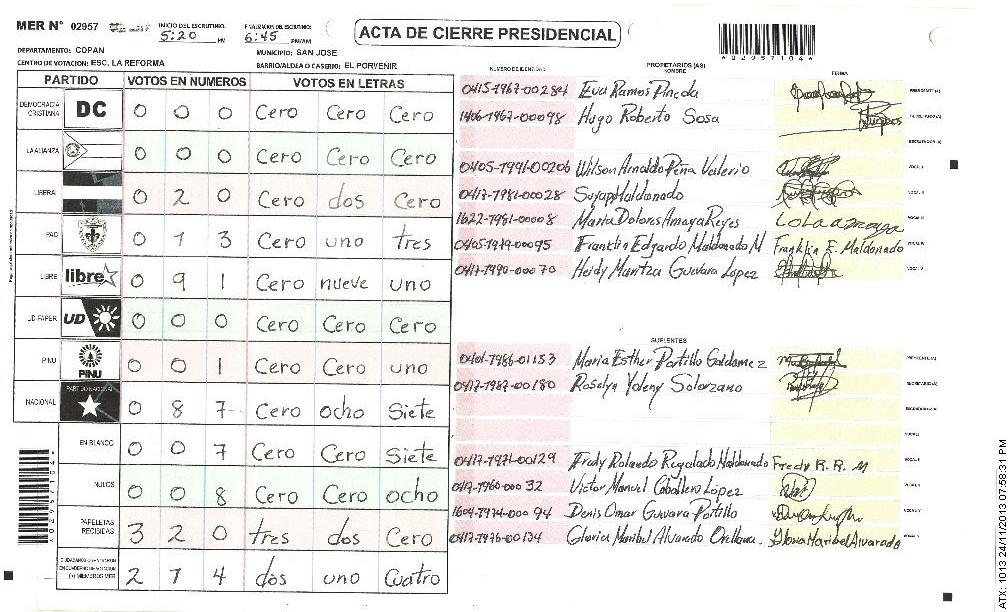 MER N° 02957
INICIO DEL ESCRUTINIO: 5:20 PM
FINALIZACION DEL ESCRUTINIO: 6:45 PM/AM
ACTA DE CIERRE PRESIDENCIAL
*02957104*
DEPARTAMENTO: COPAN
MUNICIPIO: SAN JOSE
CENTRO DE VOTACION: ESC. LA REFORMA
BARRIO/ALDEA O CASERIO: EL PORVENIR
PARTIDO VOTOS EN NUMEROS VOTOS EN LETRAS
DEMOCRACIA CRISTIANA DC 0 0 0 Cero Cero Cero
LA ALIANZA 0 0 0 Cero Cero Cero
LIBERAL 0 2 0 Cero dos Cero
PAC 0 1 3 Cero uno tres
LIBRE libre 0 9 1 Cero nueve uno
UD FAPER UD 0 0 0 Cero Cero Cero
PINU PINU 0 0 1 Cero Cero uno
NACIONAL PARTIDO NACIONAL 0 8 7 Cero ocho Siete
EN BLANCO 0 0 7 Cero Cero Siete
NULOS 0 0 8 Cero Cero ocho
PAPELETAS RECIBIDAS 3 2 0 tres dos Cero
(+) MIEMBROS MER 2 1 4 dos uno Cuatro
NUMERO DE IDENTIDAD PROPIETARIOS (AS) NOMBRE FIRMA
0415-1967-00284 Eva Ramos Pineda PRESIDENTE(A)
1406-1967-00098 Hugo Roberto Sosa SECRETARIO(A)
ESCRUTADOR(A)
0405-1991-00206 Wilson Arnaldo Peña Valerio VOCAL I
0417-1981-00028 Suyapa Maldonado VOCAL II
1622-1961-0008 Maria Dolores Amaya Reyes Lola amaya VOCAL III
0405-1979-00095 Franklin Edgardo Maldonado M Franklin E. Maldonado VOCAL IV
0417-1990-00070 Heidy Maritza Guevara Lopez VOCAL V
SUPLENTES
0401-1986-01153 Maria Esther Portillo Galdamez PRESIDENTE(A)
0417-1987-00180 Roselyn Yoleny Solorzano SECRETARIO(A)
ESCRUTADOR(A)
VOCAL I
0417-1971-00129 Fredy Rolando Regalado Maldonado Fredy R. R. M VOCAL II
0417-1960-00032 Victor Manuel Caballero López VOCAL III
1604-1974-00094 Denis Omar Guevara Portillo VOCAL IV
0417-1976-00134 Gloria Maribel Alvarado Orellana. Gloria Maribel Alvarado VOCAL V
*02957104*
ATX: 1013 24/11/2013 07:58:31 PM